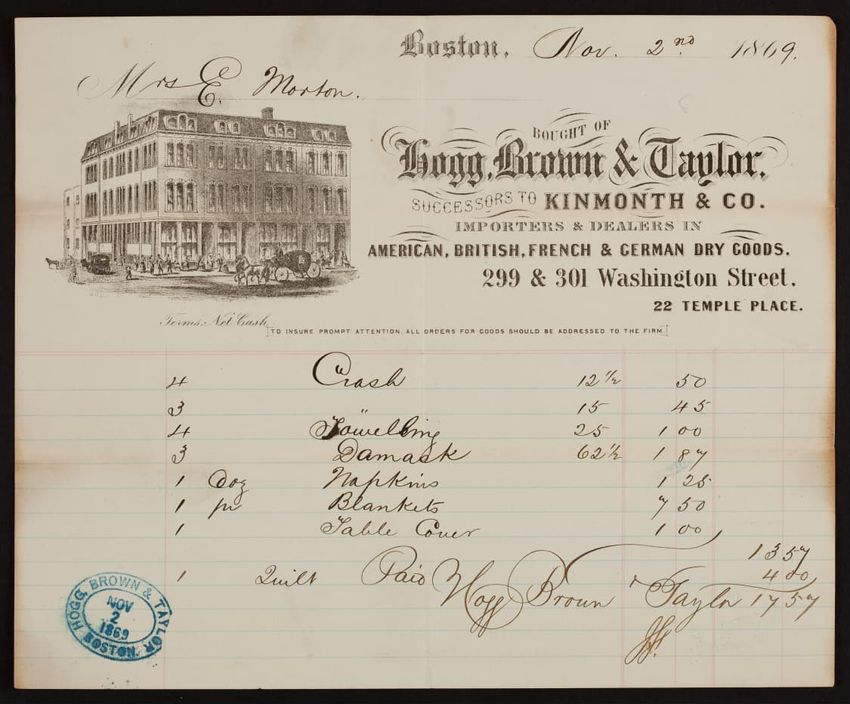 Boston, Nov. 2nd 1869.
Mrs E. Morton.
BOUGHT OF
Hogg, Brown & Taylor,
SUCCESSORS TO KINMONTH & CO.
IMPORTERS & DEALERS IN
AMERICAN, BRITISH, FRENCH & GERMAN DRY GOODS.
299 & 301 Washington Street.
22 TEMPLE PLACE.
Terms, Net Cash.
TO INSURE PROMPT ATTENTION, ALL ORDERS FOR GOODS SHOULD BE ADDRESSED TO THE FIRM.
4 Crash 12½ 50
3 " 15 45
4 Towelling 25 1 00
3 Damask 62½ 1 87
1 Doz Napkins 1 25
1 pr Blankets 7 50
1 Table Cover 1 00
13 57
1 Quilt 4 00
Paid Hogg Brown & Taylor 17 57
HOGG, BROWN & TAYLOR
NOV
2
1869
BOSTON.